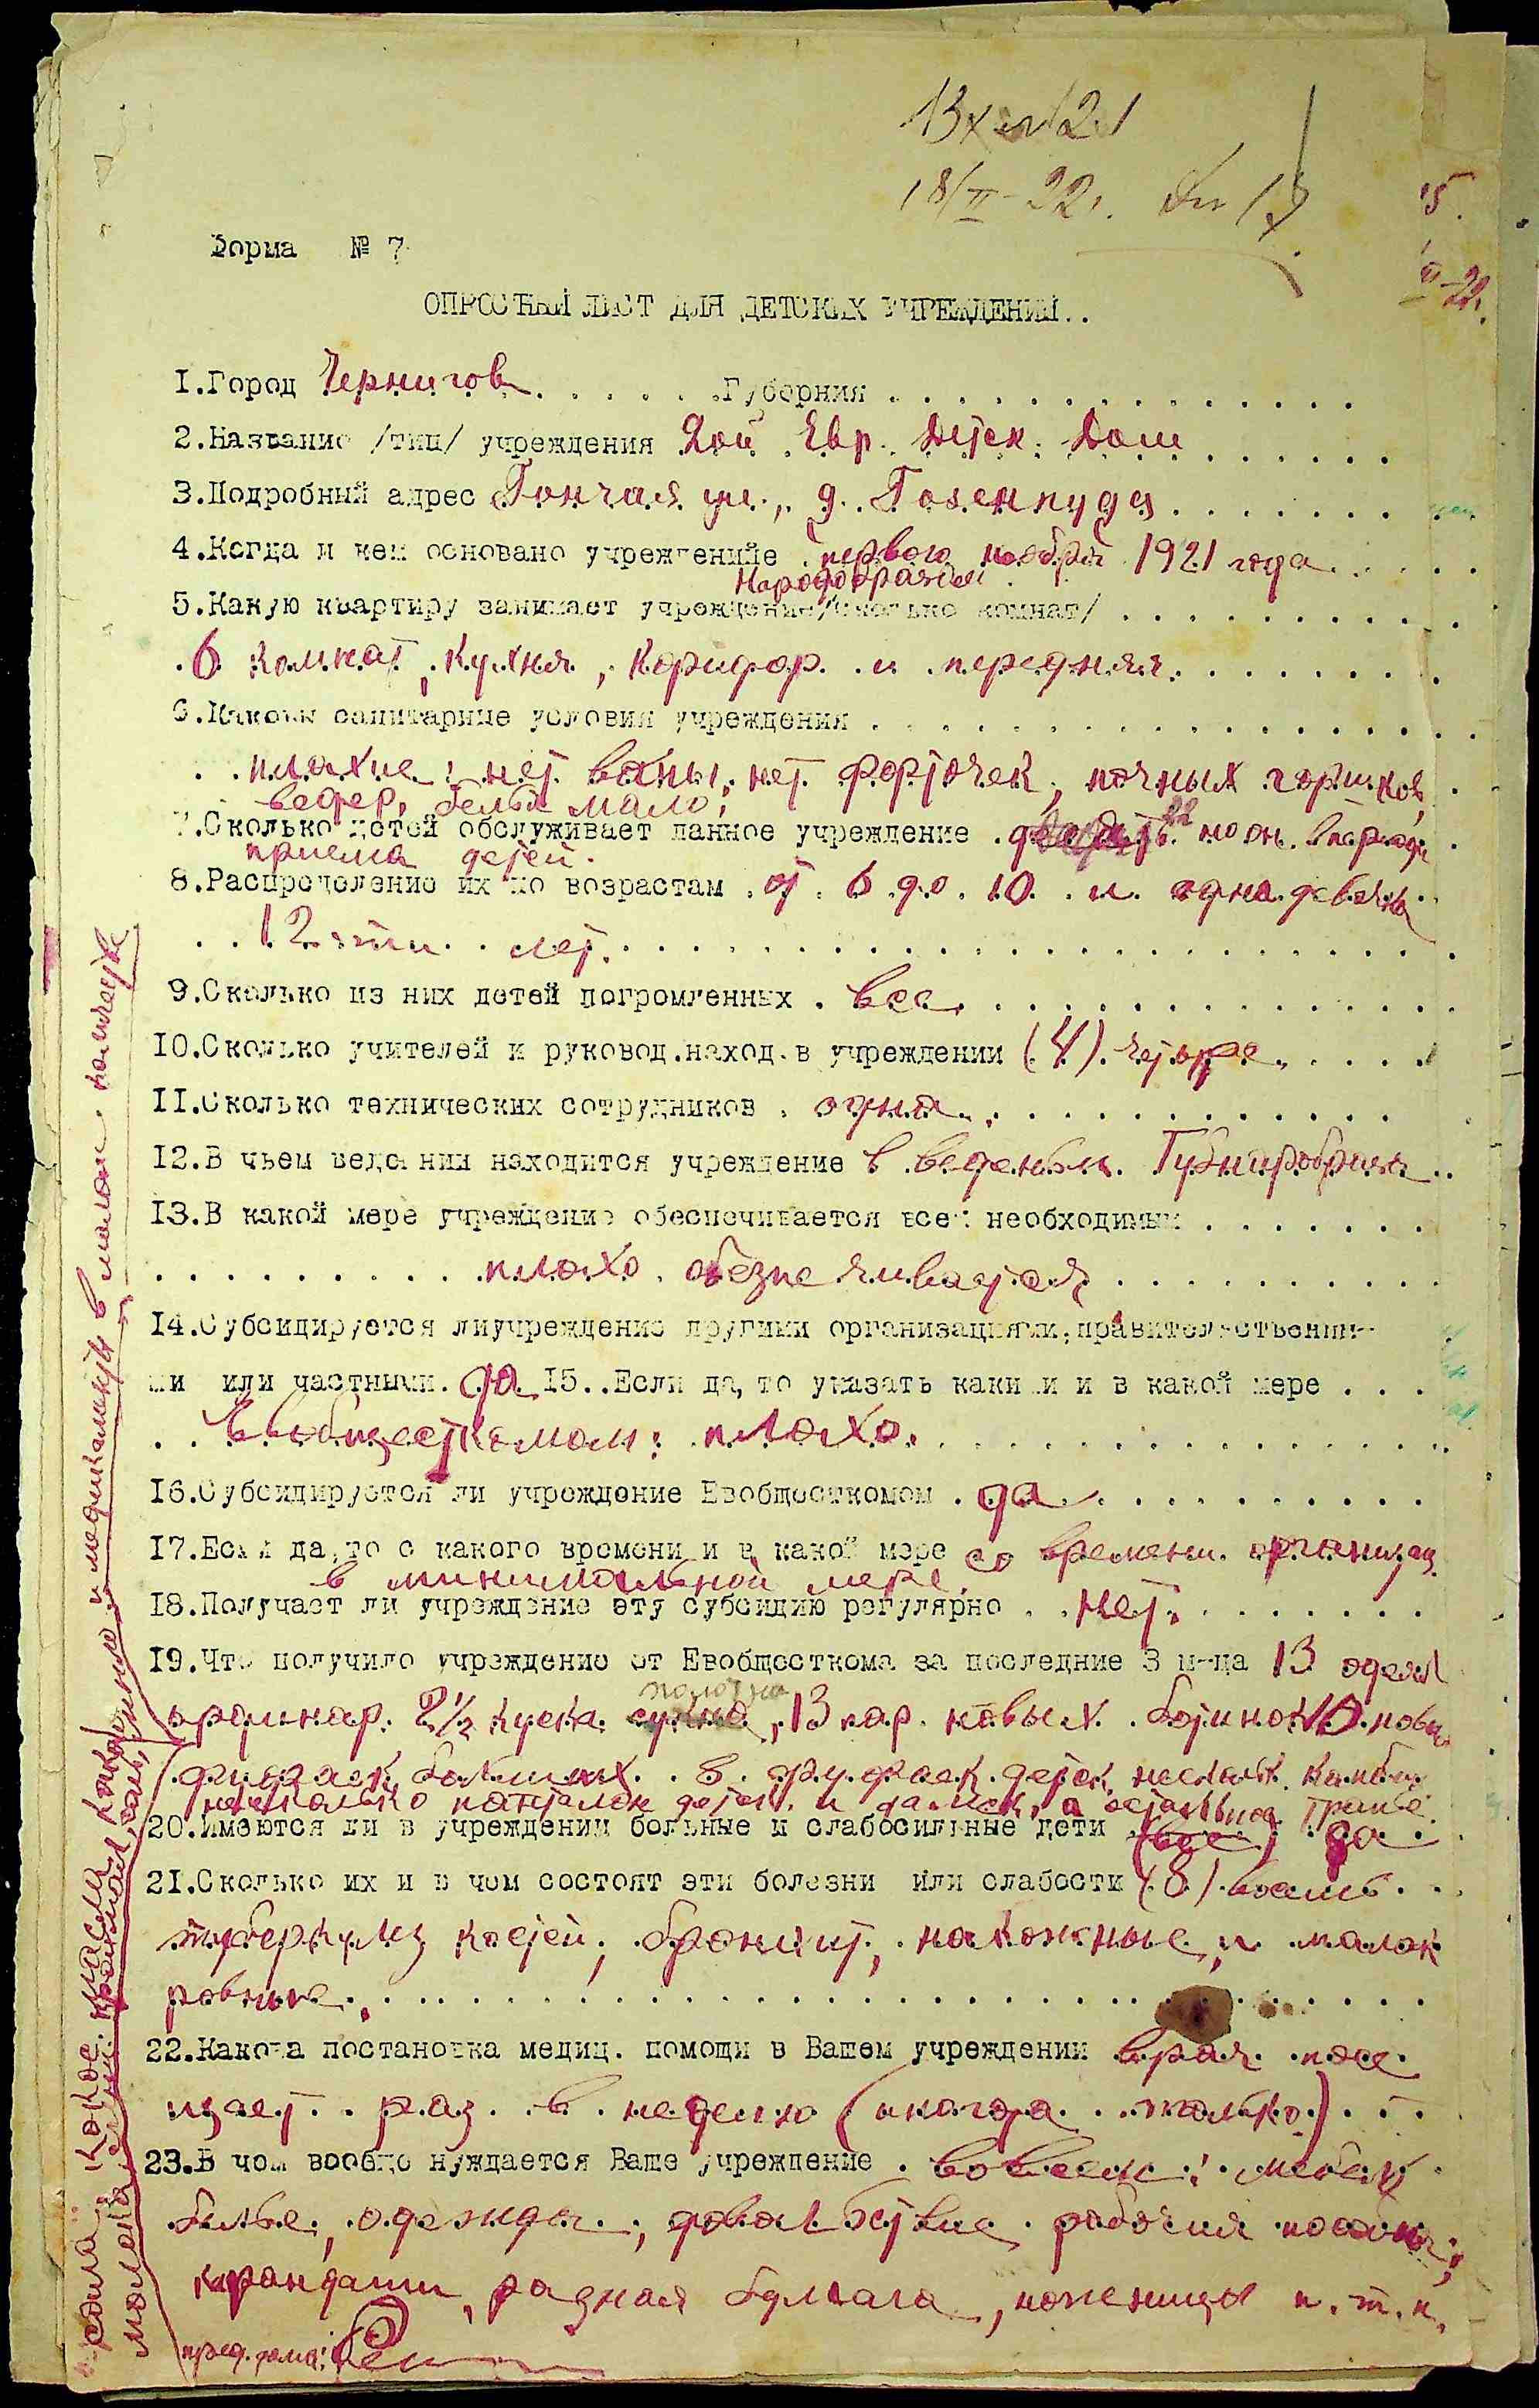 18/II-22.
Форма № 7
ОПРОСНЫЙ ЛИСТ ДЛЯ ДЕТСКИХ УЧРЕЖДЕНИЙ..
1.Город Чернигов. . . . . .Губерния . . . . . . . . . . . . . .
2.Название /тип/ учреждения 2ой Евр. Детск. Дом . . . . . .
3.Подробный адрес Гончая ул., д. Гозенпуда . . . . . . .
4.Когда и кем основано учреждениие первого ноября 1921 года . . . .
Народобразом
5.Какую квартиру занимает учреждение/сколько комнат/ . . . . . . . . . .
6 комнат, кухня, коридор и передняя. . . . . . . .
6.Каковы санитарные условия учреждения . . . . . . . . . . . . . . . .
плохие: нет ванны, нет форточек, ночных горшков
ведер, белья мало,
7.Сколько детей обслуживает данное учреждение 22 но он. впереди
приема детей.
8.Распределение их по возрастам от 6 до 10 и одна девочка
12-ти лет. . . . . . . . . . . . . . . . . . . . .
9.Сколько из них детей погромленных . все. . . . . . . . . . . . . .
10.Сколько учителей и руковод.наход.в учреждении (4) четыре. . . . .
11.Сколько технических сотрудников . одна. . . . . . . . . . . . .
12.В чьем ведении находится учреждение в веденьи
13.В какой мере учреждение обеспечивается всем необходимым . . . . . . .
. . . . . . . . плохо обезпечивается . . . . . . . . . .
14.Субсидируется лиучреждение другими организациями,правительственны-
ми или частными. да 15..Если да,то указать какими и в какой мере . . .
Евобщесткомом: плохо. . . . . . . . . . . . . . .
16.Субсидируется ли учреждение Евобщесткомом . да. . . . . . . . . . .
17.Если да,то с какого времени и в какой мере со времени организац.
в минимальной мере.
18.Получает ли учреждение эту субсидию регулярно . . нет. . . . . . . .
19.Что получило учреждение от Евобщесткома за последние 3 м-ца 13 одеял
ординар. 2½ куска полотна, 13 пар новых ботинок 10 новы
больших 8 детск.
несколько детск. и дамск, а остальное
20.Имеются ли в учреждении больные и слабосильные дети (все) да
21.Сколько их и в чем состоят эти болезни или слабости (8) восемь. . .
туберкулез костей, бронхит, накожные и малок
ровные. . . . . . . . . . . . . . . . . . . . . . .
22.Какова постановка медиц. помощи в Вашем учреждении врач посе
щает раз в неделю (иногда только) . .
23.В чем вообще нуждается Ваше учреждение . во всем: мебель
белье, одежда, довольствие рабочия пособия,
карандаши, разная бумага, ноженицы и т. п.
пред. дома:
и медикаменты в малом количестве